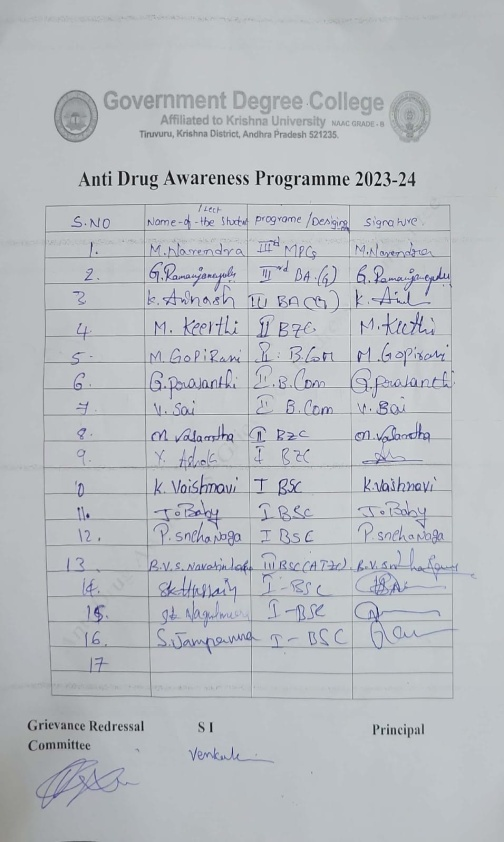 Government Degree College
Affiliated to Krishna University NAAC GRADE - B
Tiruvuru, Krishna District, Andhra Pradesh 521235.
Anti Drug Awareness Programme 2023-24
S.NO Name-of-the Student /Lect programe/Desiging signature
1. M.Narendra IIIrd MPCs M.Narendra
2. G.Ramanjaneyulu IIIrd BA.(G) G.Ramanjaneyulu
3 K. Avinash III BA(G) K.
4. M. Keerthi II BZC M. Keethi
5. M.GoPiRani II. B.Com M.Gopirani
6. G.prasanthi I.B.Com G.prasanthi
7. V. Sai I B.Com V. Sai
8. M. II BZC M.
9. Y. Ashok I BZC
10 K. Vaishnavi I BSC K.Vaishnavi
11. J.Baby I BSC J.Baby
12. P.snehaNaga I BSC P.snehaNaga
13 B.V.S. III BSC B.V.S
14. SK.Hussain I-BSC
15. I-BSC
16. S. I-BSC
17
Grievance Redressal S I Principal
Committee